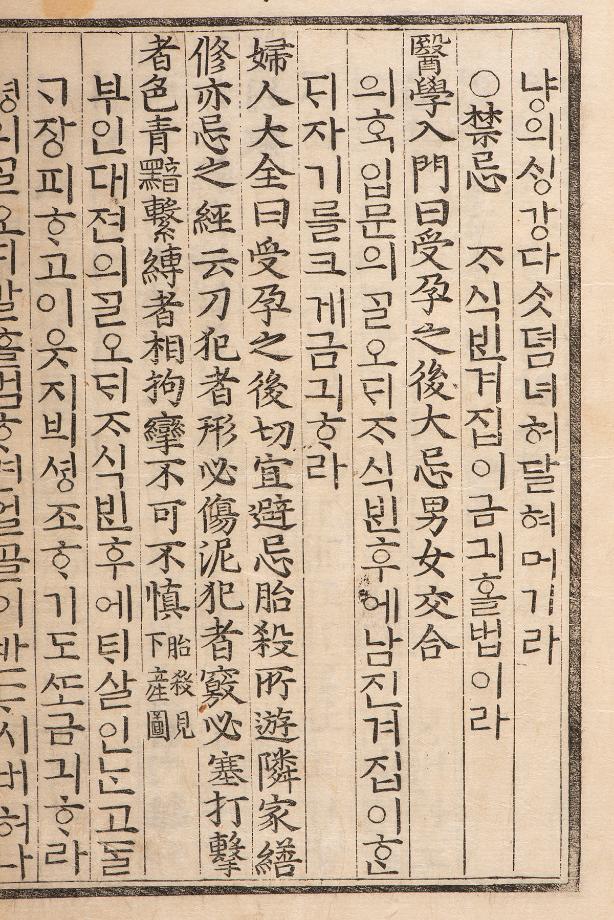 냥의 ᄉᆡᆼ강 다ᄉᆞᆺ 뎜 녀허 달혀 머기라
○禁忌 ᄌᆞ식 ᄇᆡᆫ 겨집이 금긔ᄒᆞᆯ 법이라
醫學入門曰受孕之後大忌男女交合
의ᄒᆞᆨ입문의 ᄀᆞᆯ오ᄃᆡ ᄌᆞ식 ᄇᆡᆫ 후에 남진 겨집이 ᄒᆞᆫ
ᄃᆡ 자기를 크게 금긔ᄒᆞ라
婦人大全曰受孕之後切宜避忌胎殺所遊隣家繕
修亦忌之經云刀犯者形必傷泥犯者竅必塞打擊
者色青黯繫縛者相拘攣不可不慎胎殺見下產圖
부인대젼의 ᄀᆞᆯ오ᄃᆡ ᄌᆞ식 ᄇᆡᆫ 후에 ᄐᆡ살 인ᄂᆞᆫ 고ᄃᆞᆯ
ᄀᆞ장 피ᄒᆞ고 이웃지븨 셩조ᄒᆞ기도 ᄯᅩ 금긔ᄒᆞ라